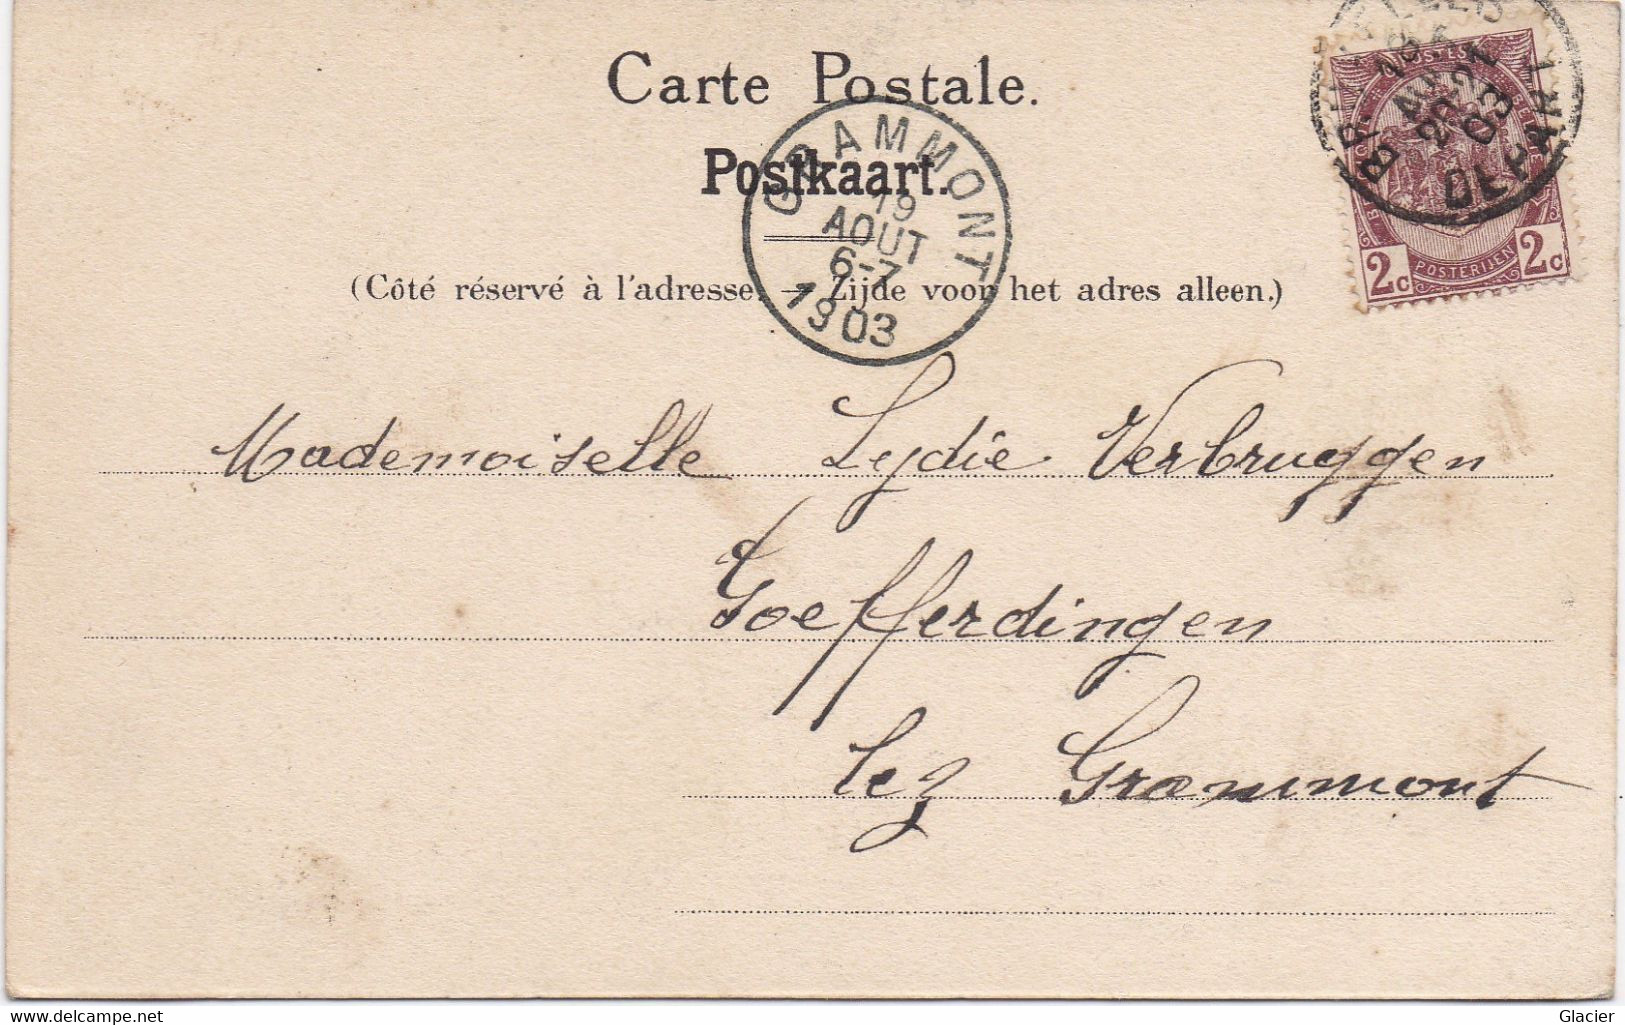 Carte Postale.
Postkaart.
(Côté réservé à l'adresse. — Zijde voor het adres alleen.)
GRAMMONT
19
AOUT
6-7
1903
BRUXELLES
18
AOUT
20-21
03
DEPART
2c POSTERIJEN 2c
Mademoiselle Lydie Verbruggen
Goefferdingen
lez Grammont
www.delcampe.net
Glacier